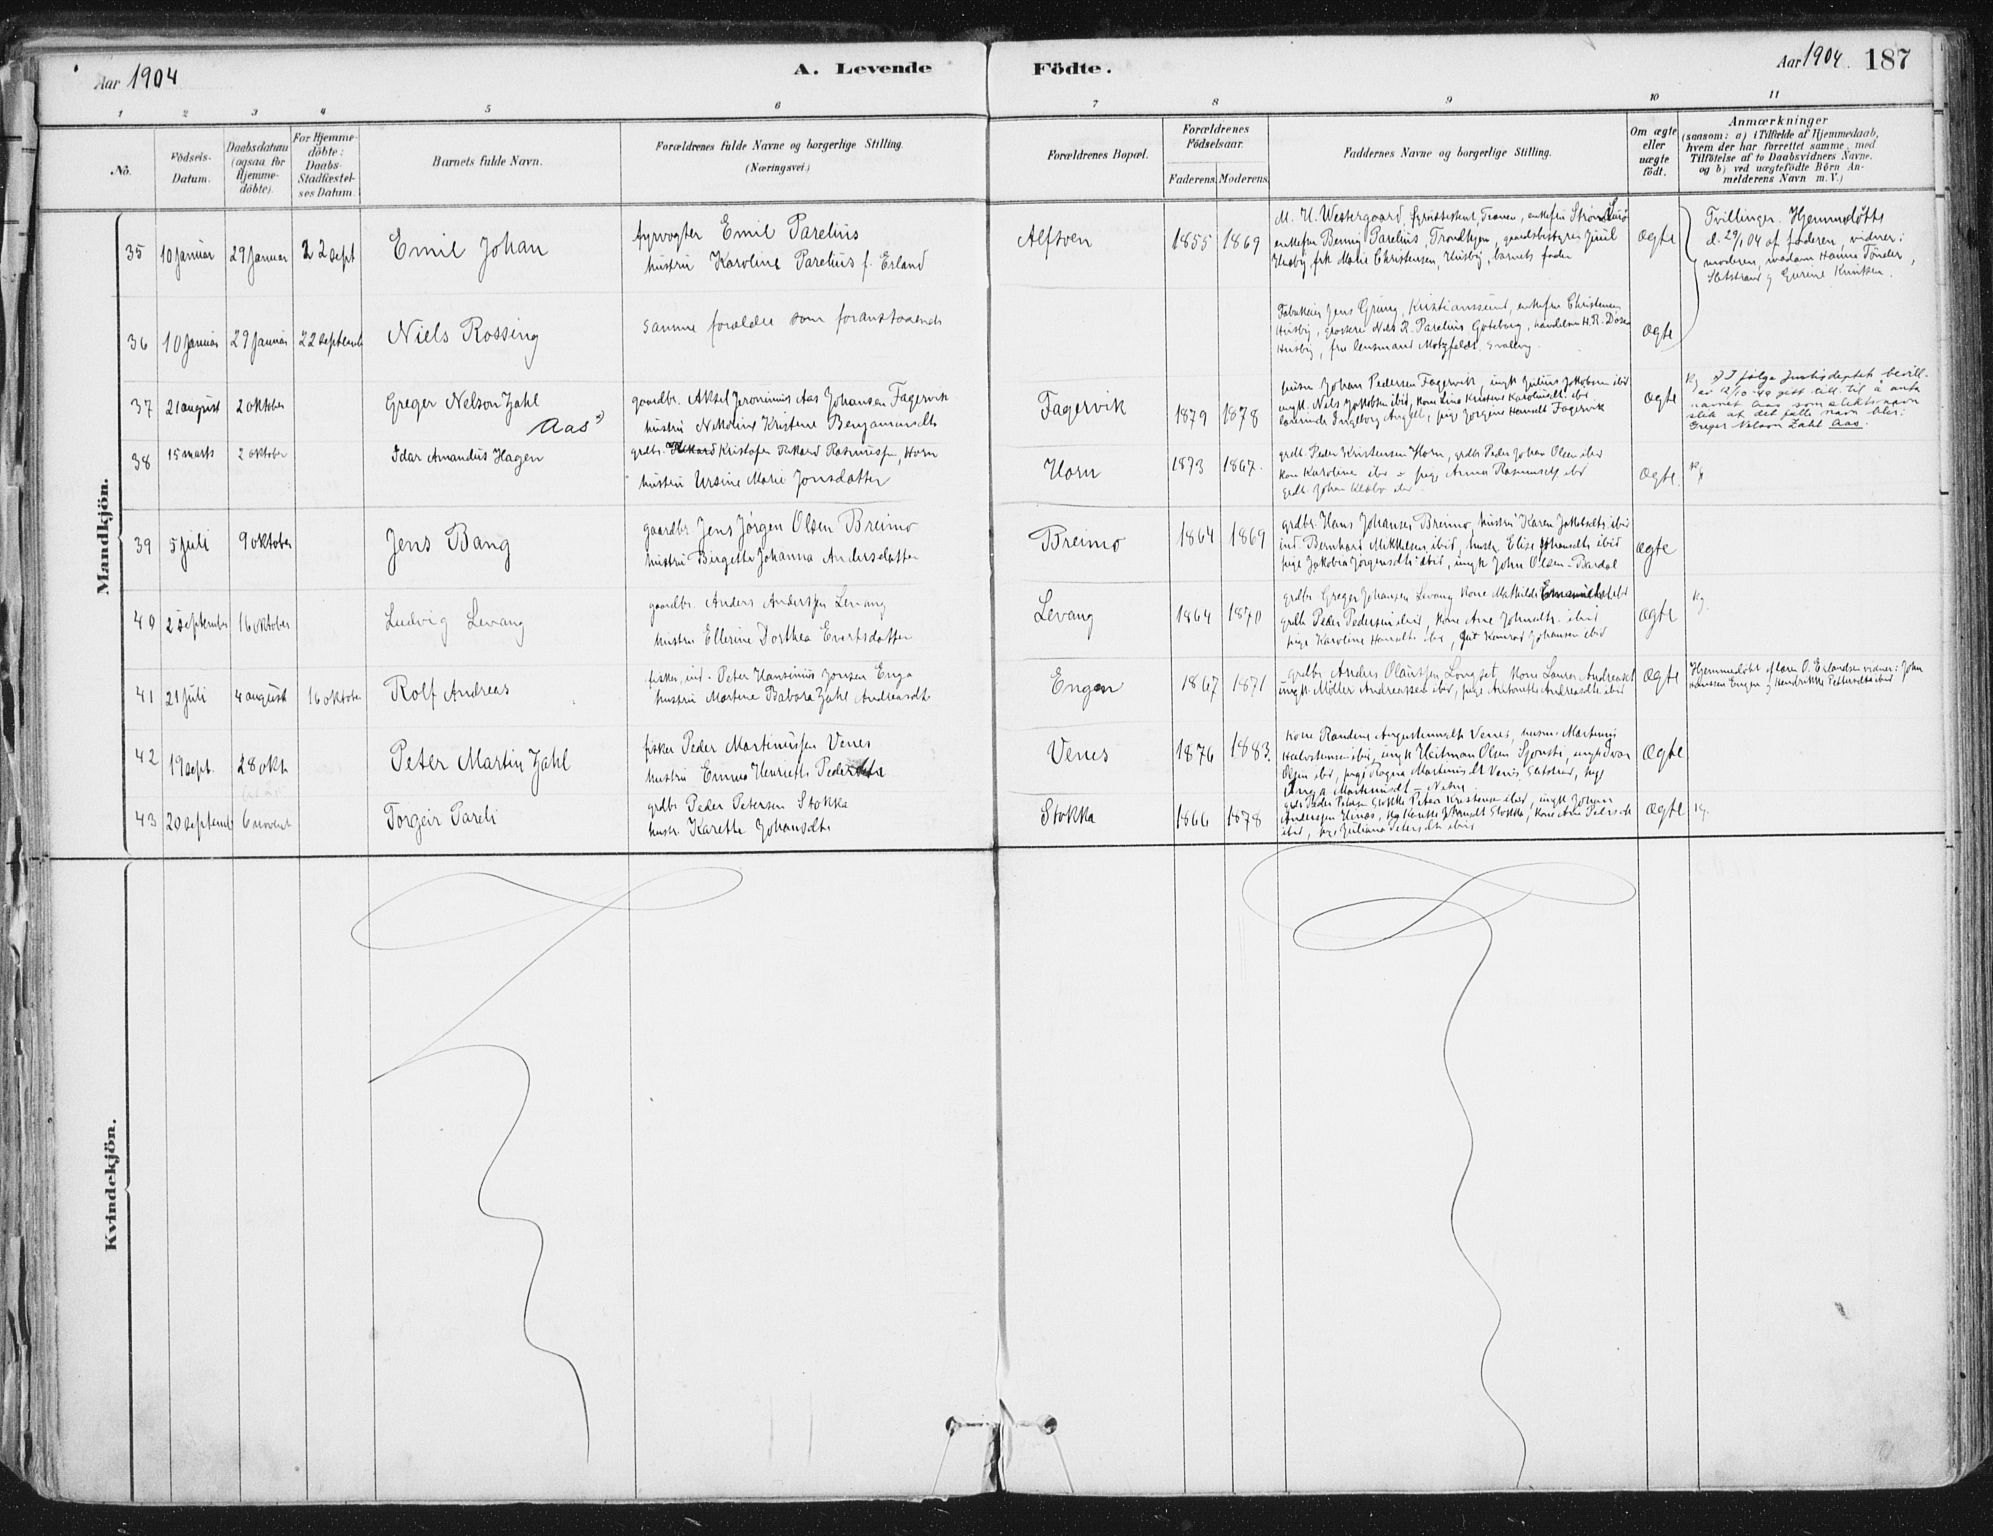 Aar 1904
A. Levende Födte.
Aar 1904. 187
1 2 3 4 5 6 7 8 9 10 11
No.
Födsels-
Datum.
Daabsdatum
(ogsaa for
Hjemme-
döbte).
For Hjemme-
döbte:
Daabs-
Stadfæstel-
ses Datum.
Barnets fulde Navn.
Forældrenes fulde Navne og borgerlige Stilling.
(Næringsvei.)
Forældrenes Bopæl.
Forældrenes
Födselsaar.
Faderens. Moderens.
Faddernes Navne og borgerlige Stilling.
Om ægte
eller
uægte
födt.
Anmærkninger
(saasom: a) i Tilfælde af Hjemmedaab,
hvem der har forrettet samme, med
Tilföielse af to Daabsvidners Navne,
og b) ved uægtefödte Börn An-
melderens Navn m. V.)
Mandkjön.
35 10 januar 29 januar 22 sept
Emil Johan
fyrvogter Emil Parelius
hustru Karoline Parelius f. Erland
Alfsven
1855 1869
M. U. Westergaard, fyrassistent, Tranen, enkefru
enkefru Benny Parelius, Trondhjem, gaardsbestyrer Juul
Husby, frk Marie Christensen, Husby, barnets fader
ægte
Tvillinger. Hjemmedøbte
d. 29/1 04 af faderen, vidner:
moderen, madam Hanna Tønder,
og Gurine Knutsen.
36 10 januar 29 januar 22 septemb
Niels Rossing
samme forældre som foranstaaende
Jens Grung, Kristianssund, enkefru Christensen
Husby, Nils R. Parelius Gøteborg,
Husby, fru lensmand Motzfeldt
ægte
37 21 august 2 oktober
Greger Nelson Zahl
Aas x)
gaardbr. Aksel Jeronimus Aas Johansen Fagervik
hustru N. Moline Kristine Benjaminsdtr
Fagervik
1879 1878
Johan Pedersen Fagervik, ungk Julius Jakobsen ibid
ungk. Nils Jakobsen ibid, kone Lina Kristine Karolinsdtr. ibid
lærerinde Ingeborg Angell, pige Jørgine Hansdt Fagervik
ægte
x) I følge Justisdeptet bevill.
av 12/10-49 gitt till. til å anta
navnet Aas som slektsnavn
slik at det fulle navn blir:
Greger Nelson Zahl Aas.
38 15 marts 2 oktober
Idar Amandus Hagen
grdbr. Kristofer Rikard Rasmussen, Horn
hustru Ursine Marie Jonsdatter
Horn
1873 1867.
grdb. Peder Kristensen Horn, grdbr Peder Johan Olsen ibid
kone Karoline ibid pige Anna Rasmusdtr ibid
ægte.
39 5 juli 9 oktober
Jens Bang
gaardbr. Jens Jørgen Olsen Breimo
hustru Birgitte Johanna Andersdatter
Breimo
1864 1869
grdbr. Hans Johansen Breimo, hustru Karen Jakobsdtr ibid
ind. Bernhard Mikkelsen ibid, hustr. Elise Johansdtr ibid
pige Jakobia Jørgensdtr ibid, ungk John Olsen - Bardal
ægte
40 2 september 16 oktober
Ludvig Levang
gaardbr. Anders Anderssen Levang
hustru Ellerine Dorthea Evertsdatter
Levang
1864 1870
grdbr Greger Johansen Levang kone Mathilde
grdb Peder Pedersen ibid, kone Ane Johnsdtr ibid
pige Karoline Hansdtr ibid, gut Konrad Johansen ibid
ægte
41 21 juli 4 august 16 oktober
Rolf Andreas
fisker, ind. Peter Hansinius Jonsen Enga
hustru Martine Babara Zahl Andreasdtr
Engen
1867 1871
grdbr Anders Olaussen Longset, kone Laura Andreasdt
ungk. Møller Andreassen ibid, pige Antonette Andreasdtr ibid
ægte
Hjemmedøbt af lærer O. Erlandsen vidner: John
Hanssen Engen og Hendrikke Pettersdtr ibid
42 19 sept. 28 okt
Peter Martin Zahl
fisker Peder Martinussen Venes
hustru Emma Henriette Pedersdtr
Venes
1876 1883.
kone Randine Augustinusdtr Venes, Martinus
Halvorsen ibid, ungk Heitman Olsen Sjonsti, ungk Ivar
Olsen ibid, pige Ragna Martinusdt Venes, pige
Inga Martinusdt - Nesne
ægte
43 20 septemb 6 novbr
Torgeir Pareli
grdbr Peder Petersen Stokka
hustr. Karette Johansdtr
Stokka
1866 1878
grdb Peder Stokka Peter Kristensen ibid, ungk Johan
Anderssen Elnæs, Karette Johansdt Stokka, kone Ane Petersdt
ibid, pige Juliana Petersdtr ibid
ægte
Kvindekjön.